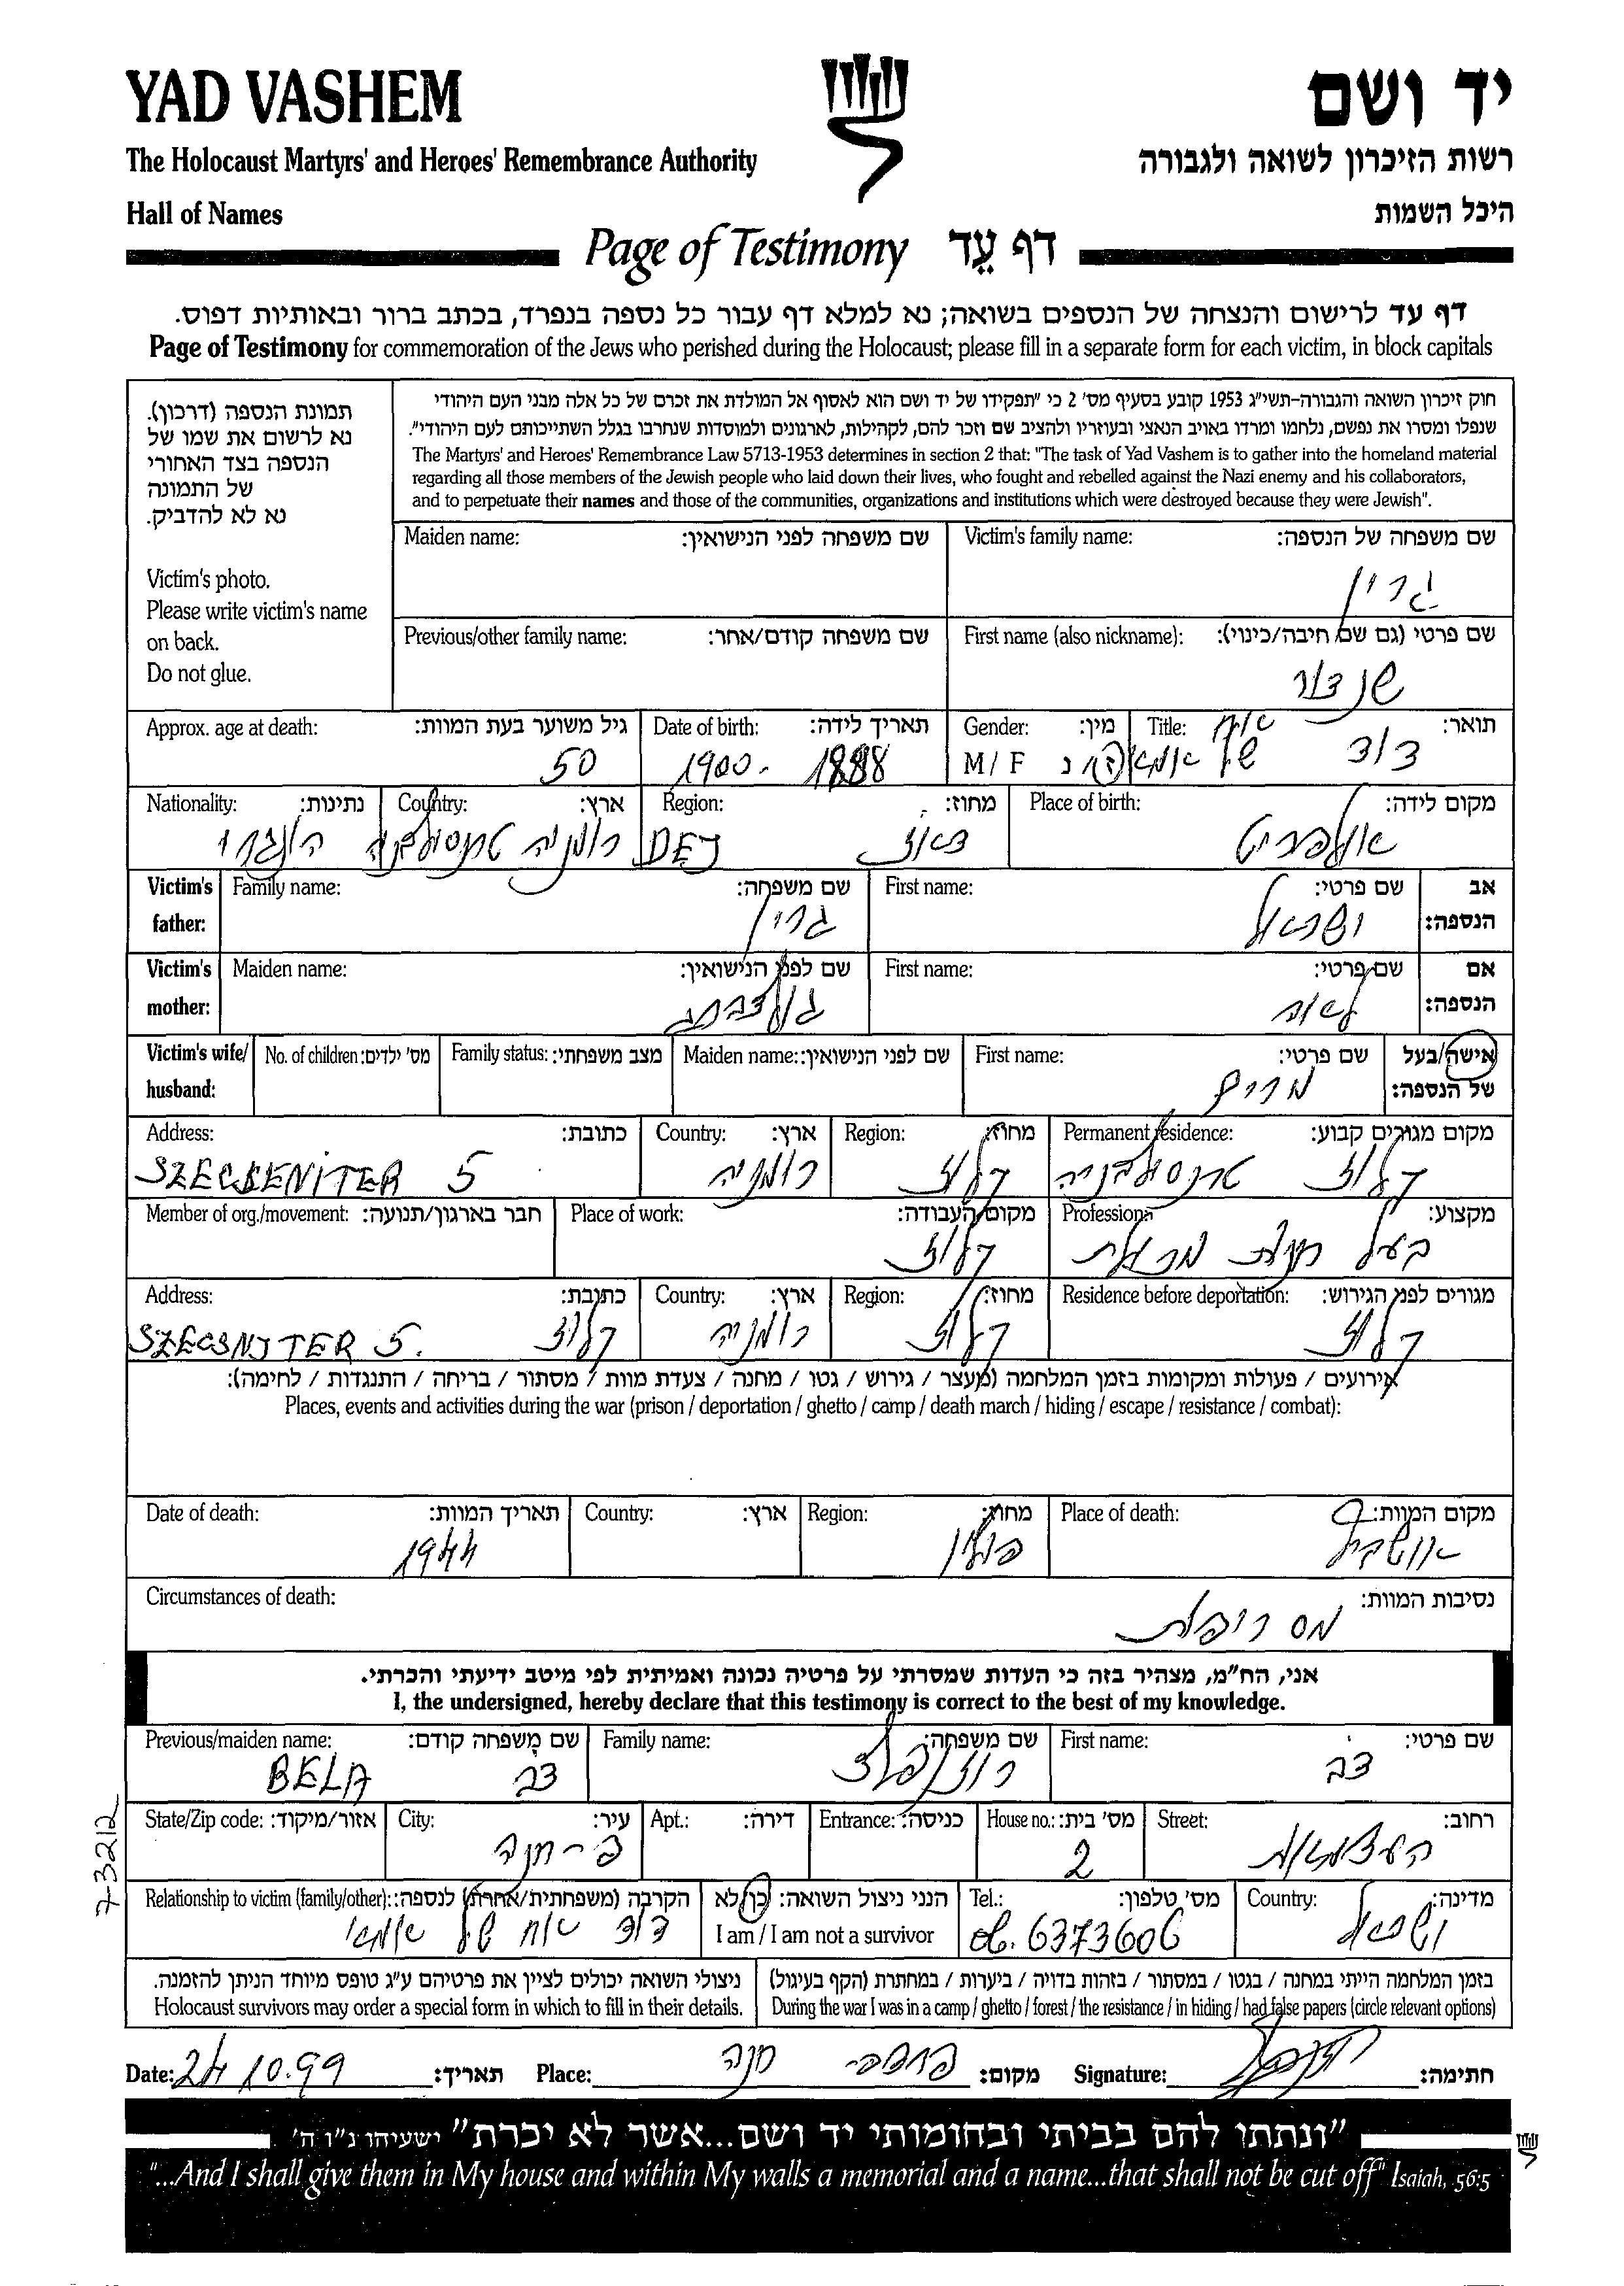 YAD VASHEM
יד ושם
The Holocaust Martyrs' and Heroes' Remembrance Authority
רשות הזיכרון לשואה ולגבורה
Hall of Names
היכל השמות
Page of Testimony דף עֵד
דף עד לרישום והנצחה של הנספים בשואה; נא למלא דף עבור כל נספה בנפרד, בכתב ברור ובאותיות דפוס.
Page of Testimony for commemoration of the Jews who perished during the Holocaust; please fill in a separate form for each victim, in block capitals
תמונת הנספה (דרכון).
נא לרשום את שמו של
הנספה בצד האחורי
של התמונה
נא לא להדביק.
Victim's photo.
Please write victim's name
on back.
Do not glue.
חוק זיכרון השואה והגבורה–תשי"ג 1953 קובע בסעיף מס' 2 כי "תפקידו של יד ושם הוא לאסוף אל המולדת את זכרם של כל אלה מבני העם היהודי
שנפלו ומסרו את נפשם, נלחמו ומרדו באויב הנאצי ובעוזריו ולהציב שם וזכר להם, לקהילות, לארגונים ולמוסדות שנחרבו בגלל השתייכותם לעם היהודי".
The Martyrs' and Heroes' Remembrance Law 5713-1953 determines in section 2 that: "The task of Yad Vashem is to gather into the homeland material
regarding all those members of the Jewish people who laid down their lives, who fought and rebelled against the Nazi enemy and his collaborators,
and to perpetuate their names and those of the communities, organizations and institutions which were destroyed because they were Jewish".
Victim's family name: שם משפחה של הנספה:
גרין
Maiden name: שם משפחה לפני הנישואין:
First name (also nickname): שם פרטי (גם שם חיבה/כינוי):
שנדור
Previous/other family name: שם משפחה קודם/אחר:
Title: תואר:
דוד אח של אמא
Gender: מין:
M / F ז נ
Date of birth: תאריך לידה:
1900. 1888
Approx. age at death: גיל משוער בעת המוות:
50
Place of birth: מקום לידה:
Region: מחוז:
דאז DEJ
Country: ארץ:
רומניה טרנסילבניה
Nationality: נתינות:
הונגרי
Victim's father: אב הנספה:
First name: שם פרטי:
ישראל
Family name: שם משפחה:
גרין
Victim's mother: אם הנספה:
First name: שם פרטי:
לאה
Maiden name: שם לפני הנישואין:
גולדברג
Victim's wife/ husband: אישה/בעל של הנספה:
First name: שם פרטי:
מרים
Maiden name: שם לפני הנישואין:
Family status: מצב משפחתי:
No. of children: מס' ילדים:
Permanent residence: מקום מגורים קבוע:
קלוז טרנסילבניה
Region: מחוז:
קלוז
Country: ארץ:
רומניה
Address: כתובת:
SZECSENITER 5
Profession: מקצוע:
בעל חנות
Place of work: מקום העבודה:
קלוז
Member of org./movement: חבר בארגון/תנועה:
Residence before deportation: מגורים לפני הגירוש:
קלוז
Region: מחוז:
קלוז
Country: ארץ:
רומניה
Address: כתובת:
קלוז SZECSNITER 5.
אירועים / פעולות ומקומות בזמן המלחמה (מעצר / גירוש / גטו / מחנה / צעדת מוות / מסתור / בריחה / התנגדות / לחימה):
Places, events and activities during the war (prison / deportation / ghetto / camp / death march / hiding / escape / resistance / combat):
Place of death: מקום המוות:
אושביץ
Region: מחוז:
פולין
Country: ארץ:
Date of death: תאריך המוות:
1944
Circumstances of death: נסיבות המוות:
אני, הח"מ, מצהיר בזה כי העדות שמסרתי על פרטיה נכונה ואמיתית לפי מיטב ידיעתי והכרתי.
I, the undersigned, hereby declare that this testimony is correct to the best of my knowledge.
First name: שם פרטי:
דב
Family name: שם משפחה:
רוזנפלד
Previous/maiden name: שם משפחה קודם:
דב BELA
Street: רחוב:
העצמאות
House no.: מס' בית:
2
Entrance: כניסה:
Apt.: דירה:
City: עיר:
פ-חנה
State/Zip code: אזור/מיקוד:
73212
Country: מדינה:
ישראל
Tel.: מס' טלפון:
06. 6373606
הנני ניצול השואה: כן/לא
I am / I am not a survivor
Relationship to victim (family/other): הקרבה (משפחתית/אחרת) לנספה:
דוד אח של אמא
בזמן המלחמה הייתי במחנה / בגטו / במסתור / בזהות בדויה / ביערות / במחתרת (הקף בעיגול)
During the war I was in a camp / ghetto / forest / the resistance / in hiding / had false papers (circle relevant options)
ניצולי השואה יכולים לציין את פרטיהם ע"ג טופס מיוחד הניתן להזמנה.
Holocaust survivors may order a special form in which to fill in their details.
Date: 24 10.99 תאריך: Place: פרדס חנה מקום: Signature: חתימה:
"ונתתי להם בביתי ובחומותי יד ושם...אשר לא יכרת" ישעיהו נ"ו ה'
"...And I shall give them in My house and within My walls a memorial and a name...that shall not be cut off" Isaiah, 56:5